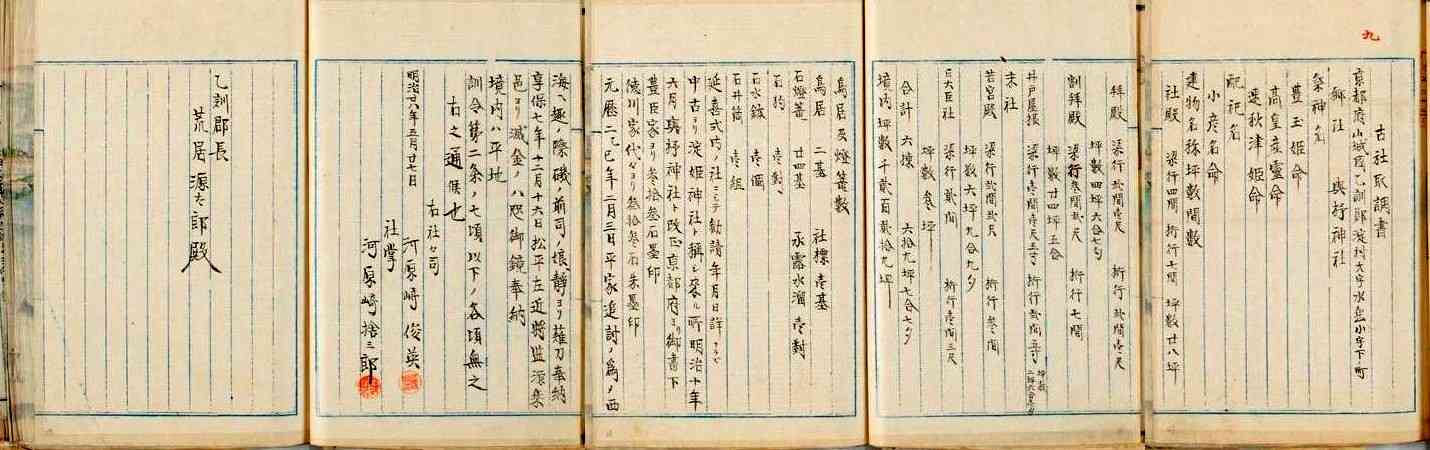 九
古社取調書
京都府山城國乙訓郡淀村大字水垂小字下ノ町
郷社 與杼神社
祭神名
豊玉姫命
高皇産靈命
速秋津姫命
配祀名
小彦名命
建物名称坪數間數
社殿 梁行四間 桁行七間 坪數廿八坪
拜殿 梁行弐間壱尺 桁行弐間壱尺
坪數四坪六合七勺
割拜殿 梁行参間弐尺 桁行七間
坪數廿四坪五合
井戸屋根 梁行壱間壱尺五寸 桁行弐間五寸
末社
若宮殿 梁行弐間弐尺 桁行参間
坪數六坪九合九夕
日大臣社 梁行弐間 桁行壱間三尺
坪數参坪
合計 六棟 六拾九坪七合七夕
境内坪數千弐百弐拾九坪
鳥居及燈篭數
鳥居 二基 社標壱基
石燈篭 廿四基 承露水溜壱對
石狛 壱對
石水鉢 壱個
石井筒 壱組
延喜式内ノ社ニシテ勧請年月日詳ナラズ
中古ヨリ淀姫神社ト稱シ來ル所明治十年
六月與杼神社ト改正京都府ヨリ御書下
豊臣家ヨリ参拾参石墨印
徳川家代々ヨリ参拾参石朱墨印
元暦二乙巳年二月三日平家追討ノ為メ西
海ヘ趣ノ際磯ノ前司ノ娘静ヨリ薙刀奉納
享保七年十二月十六日松平左近将監源乗
邑ヨリ滅金ノ八咫御鏡奉納
境内ハ平地
訓令第二条ノ七頃以下ノ各頃無之
右之通候也
明治廿八年五月廿七日
右社々司
河原﨑俊英
社掌
河原﨑捨三郎
乙訓郡長
荒居源太郎殿